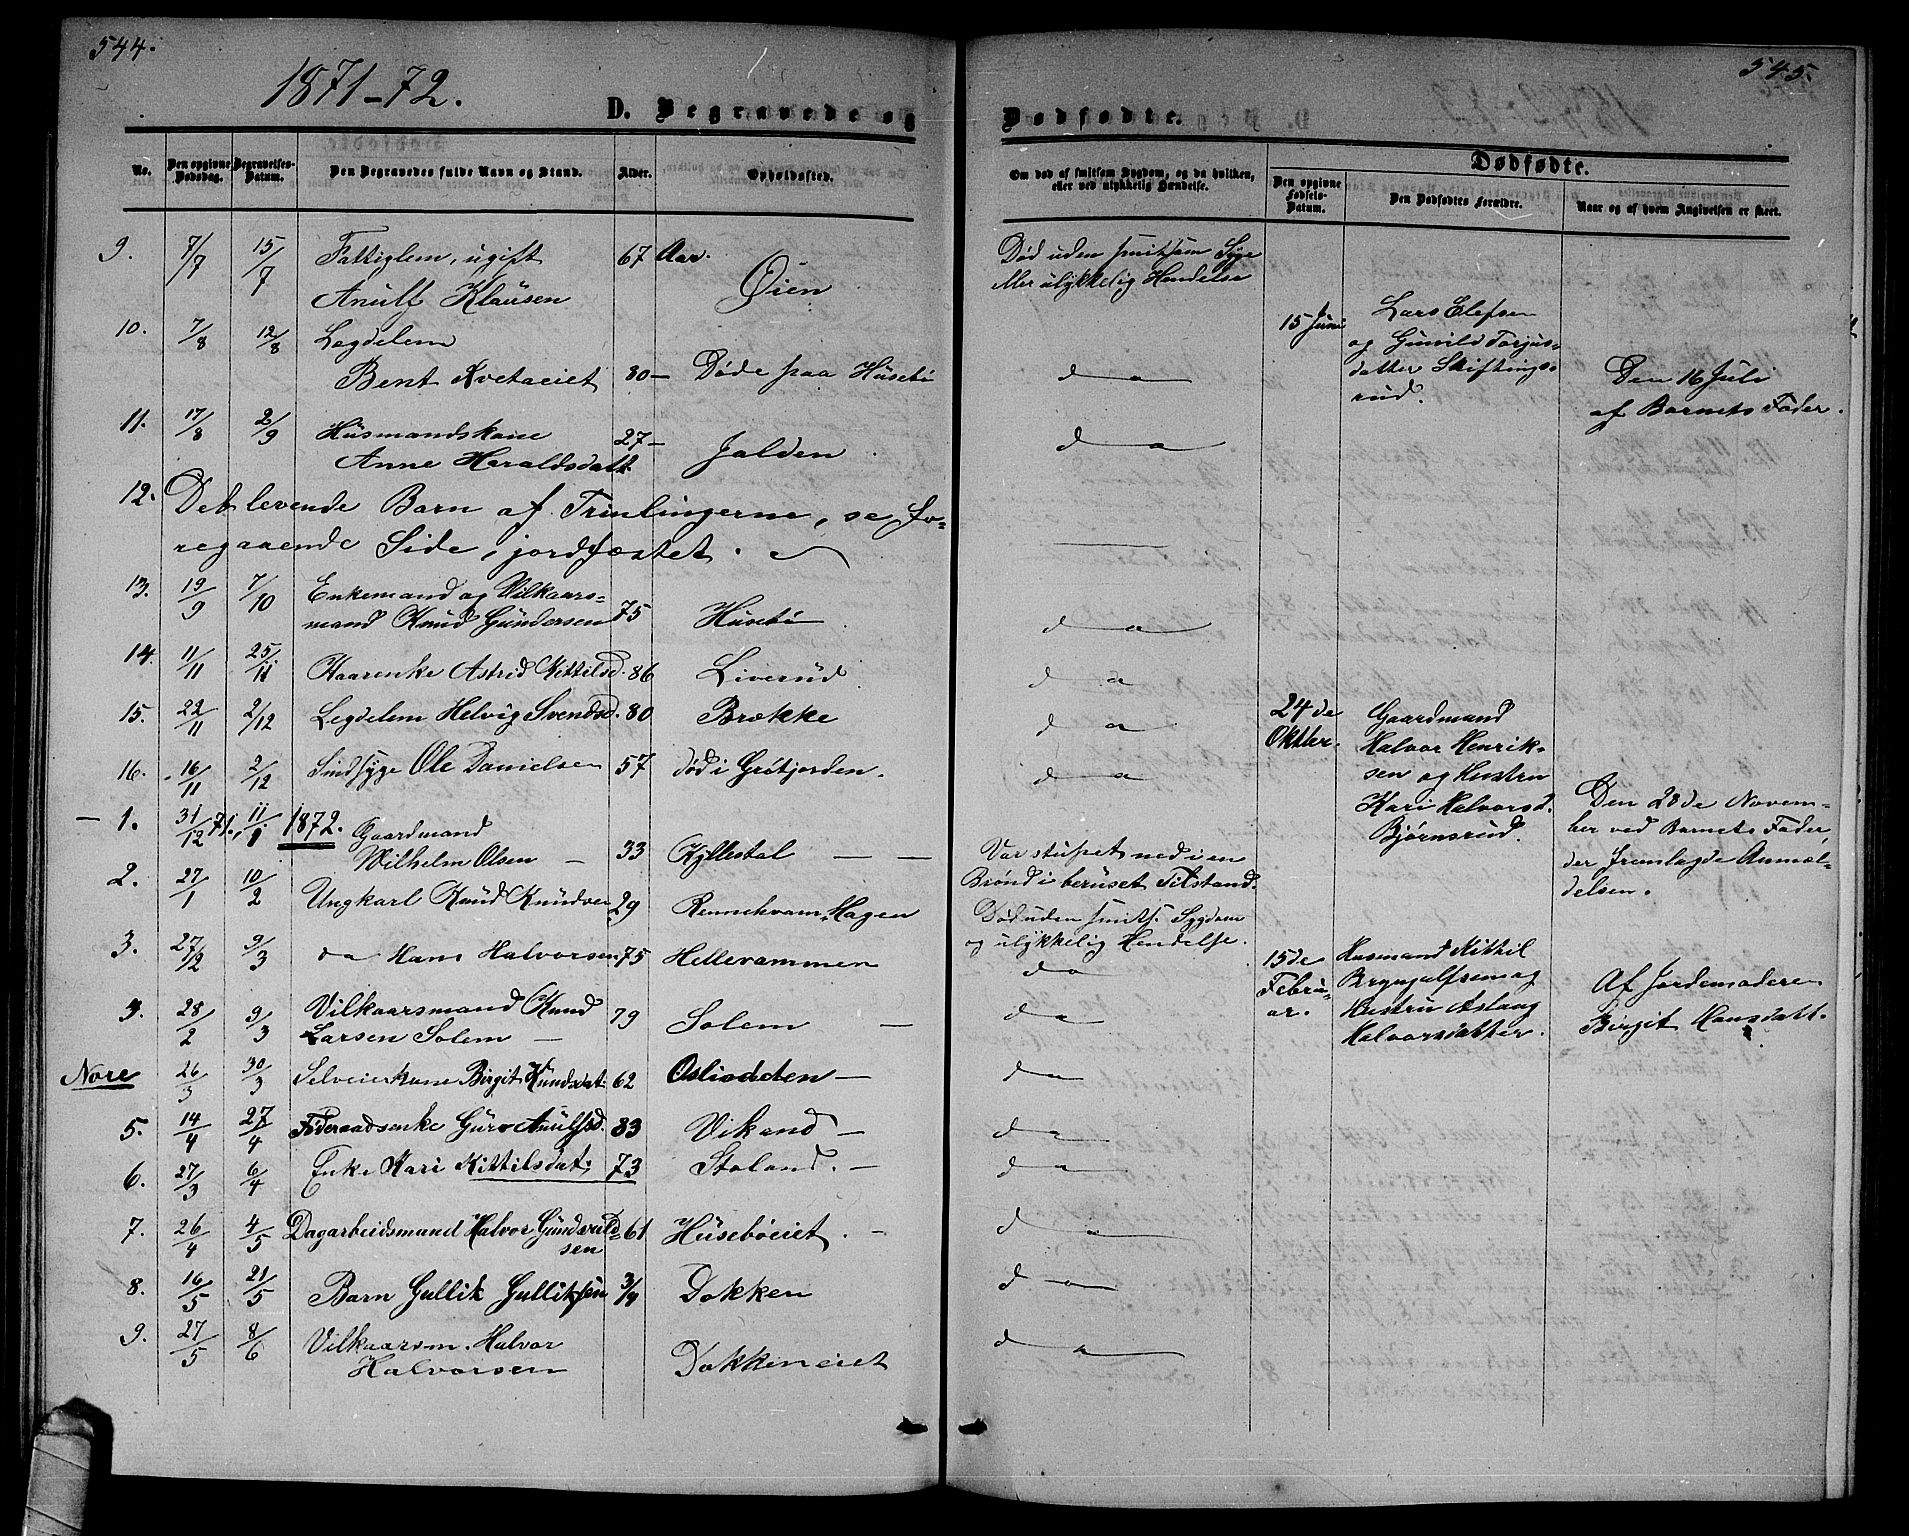 544.
1871-72.
D. Begravede og
No.
Den opgivne Dødsdag.
Begravelses-Datum.
Den Begravedes fulde Navn og Stand.
Alder.
Opholdssted.
9. 7/7 15/7 Fattiglem, ugift 67 Aar.
Anulf Klausen Øien
10. 7/8 12/8 Legdelem
Bent Kvetaeiet 80 — Døde paa Husebö
11. 17/8 2/9 Husmandskone 27 —
Anne Haraldsdatt. Jalden
12. Det levende Barn af Trinlingerne, se fo-
regaaende Side, jordfæstet.
13. 19/9 7/10 Enkemand og Vilkaars-
mand Knud Gundersen 75 Husebö
14. 11/11 25/11 Kaarenke Astrid Kittilsd. 86 Liverud
15. 22/11 2/12 Legdelem Helvig Svendsd. 80 Brække
16. 16/11 2/12 Sindsyge Ole Danielsen 57 död i Grötjorden.
— 1. 31/12 71. 11/1 1872. Gaardmand
Wilhelm Olsen — 33 Kyllestal — —
2. 27/1 10/2 Ungkarl Knud Knudsen 29 Rennehvam Hagen
3. 27/2 9/3 da Hans Halvorsen 75 Hellevammen
3. 28/2 9/3 Vilkaarsmand Knud
Larsen Solem — 79 Solem —
Nore 26/3 30/3 Selveierkone Birgit Knudsdat. 62 Osliodden —
5. 14/4 27/4 Föderaadsenke Guro Anulfsd. 83 Vikand —
6. 27/3 6/4 Enke Kari Kittilsdat. 73 Staland. —
7. 26/4 4/5 Dagarbeidsmand Halvor Gundvuld-
sen 61 Huseböeiet. —
8. 16/5 21/5 Barn Gullik Gulliksen 3/4 Dokken
9. 27/5 8/6 Vilkaarsm. Halvor
Halvorsen Dokkeneiet
545.
Dødfødte.
Om død af smitsom Sygdom, og da hvilken,
eller ved ulykkelig Hændelse.
Dødfødte.
Den opgivne Fødsels-Datum.
Den Dødfødtes Forældre.
Naar og af hvem Angivelsen er skeet.
Död uden smitsom Syge
eller ulykkelig Hendelse
15 Juni
Lars Elefsen
og Gunild Torjus-
datter Skiftings-
rud.
Den 16 Juli
af Barnets Fader.
da
da
da
da
da
da
24de
Oktber.
Gaardmand
Halvor Henrik-
sen og Hustru
Kari Halvorsd.
Björnsrud.
Den 28de Novem-
ber ved Barnets Fader,
der fremlagde Anmel-
delsen.
Var stupet ned i en
Brönd i beruset Tilstand.
Död uden smits. Sygdom
og ulykkelig Hendelse.
da
da
15de
Febru-
ar.
Husmand Kittil
Bryngulfsen og
Hustru Aslaug
Halvorsdatter.
Af Jordemoderen
Birgit Hansdatt.
da
da
da
da
da
da